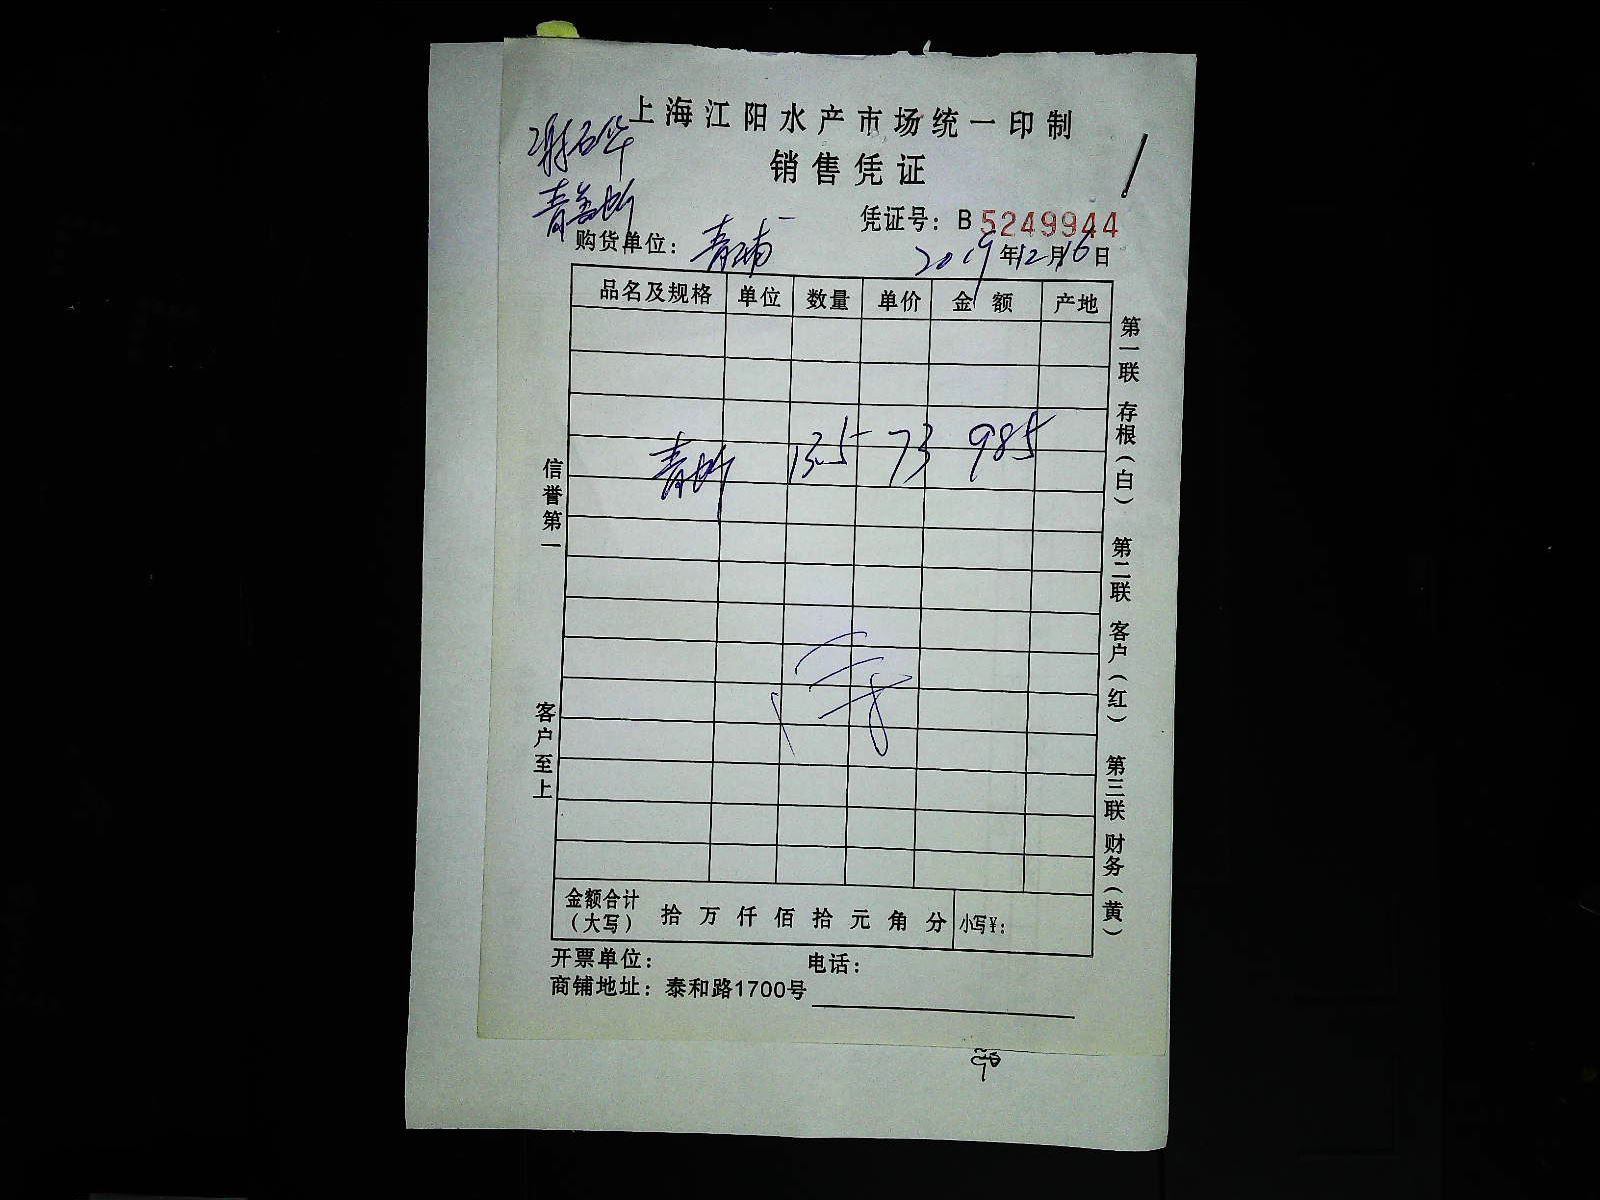 上海江阳水产市场统一印制
销售凭证
凭证号：B 5249944
购货单位：青浦
2019年12月16日
品名及规格 单位 数量 单价 金额 产地
13.5 73 985
信誉第一
客户至上
第一联 存根（白） 第二联 客户（红） 第三联 财务（黄）
金额合计（大写） 拾 万 仟 佰 拾 元 角 分 小写¥：
开票单位： 电话：
商铺地址：泰和路1700号